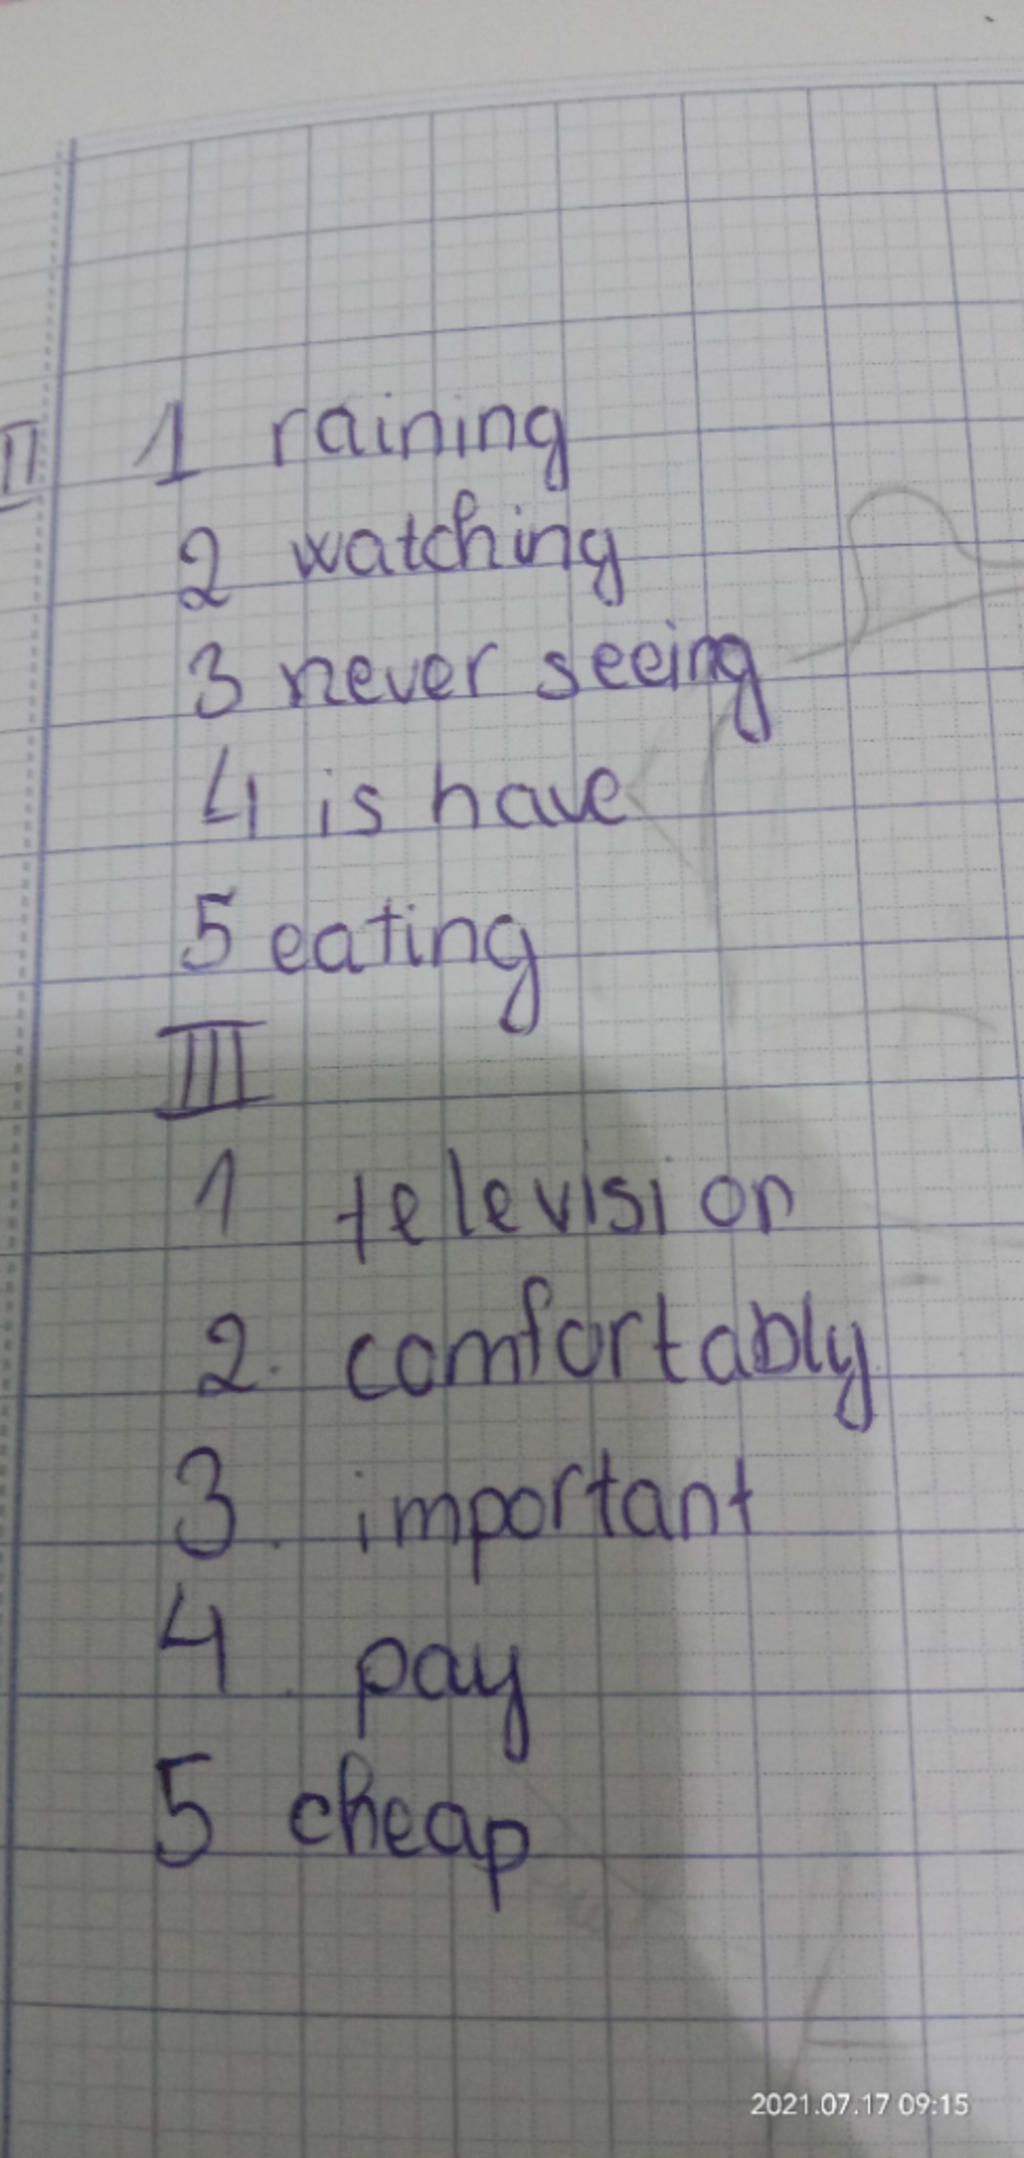 II 1 raining
2 watching
3 never seeing
4 is have
5 eating
III
1 television
2. comfortably
3. important
4. pay
5 cheap
2021.07.17 09:15